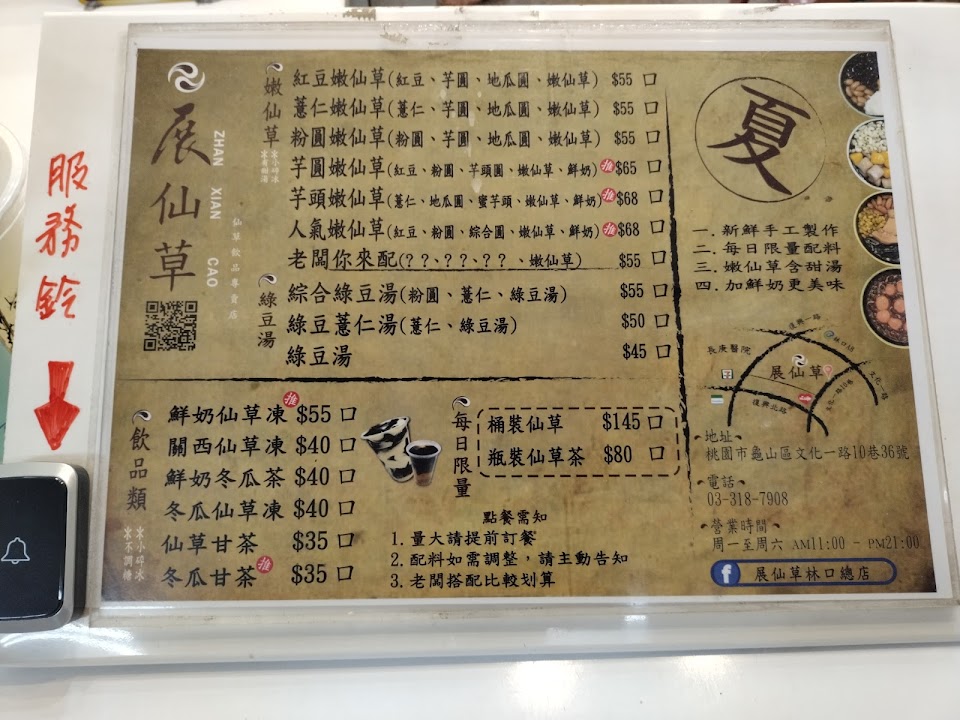 服務鈴
展仙草
ZHAN XIAN CAO
仙草飲品專賣店
嫩仙草
紅豆嫩仙草(紅豆、芋圓、地瓜圓、嫩仙草) $55 口
薏仁嫩仙草(薏仁、芋圓、地瓜圓、嫩仙草) $55 口
粉圓嫩仙草(粉圓、芋圓、地瓜圓、嫩仙草) $55 口
芋圓嫩仙草(紅豆、粉圓、芋頭圓、嫩仙草、鮮奶)推 $65 口
芋頭嫩仙草(薏仁、地瓜圓、蜜芋頭、嫩仙草、鮮奶)推 $68 口
人氣嫩仙草(紅豆、粉圓、綜合圓、嫩仙草、鮮奶)推 $68 口
老闆你來配(??、??、??、嫩仙草) $55 口
綠豆湯
綜合綠豆湯(粉圓、薏仁、綠豆湯) $55 口
綠豆薏仁湯(薏仁、綠豆湯) $50 口
綠豆湯 $45 口
夏
一.新鮮手工製作
二.每日限量配料
三.嫩仙草含甜湯
四.加鮮奶更美味
復興一路
林口A8
長庚醫院
展仙草
文化一路
復興北路
飲品類
鮮奶仙草凍推 $55 口
關西仙草凍 $40 口
鮮奶冬瓜茶 $40 口
冬瓜仙草凍 $40 口
仙草甘茶 $35 口
冬瓜甘茶推 $35 口
每日限量
桶裝仙草 $145 口
瓶裝仙草茶 $80 口
點餐需知
1.量大請提前訂餐
2.配料如需調整，請主動告知
3.老闆搭配比較划算
地址
桃園市龜山區文化一路10巷36號
電話
03-318-7908
營業時間
周一至周六 AM11:00 - PM21:00
f 展仙草林口總店